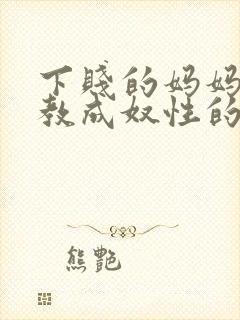 下贱的妈妈
教成奴性的
熊艳